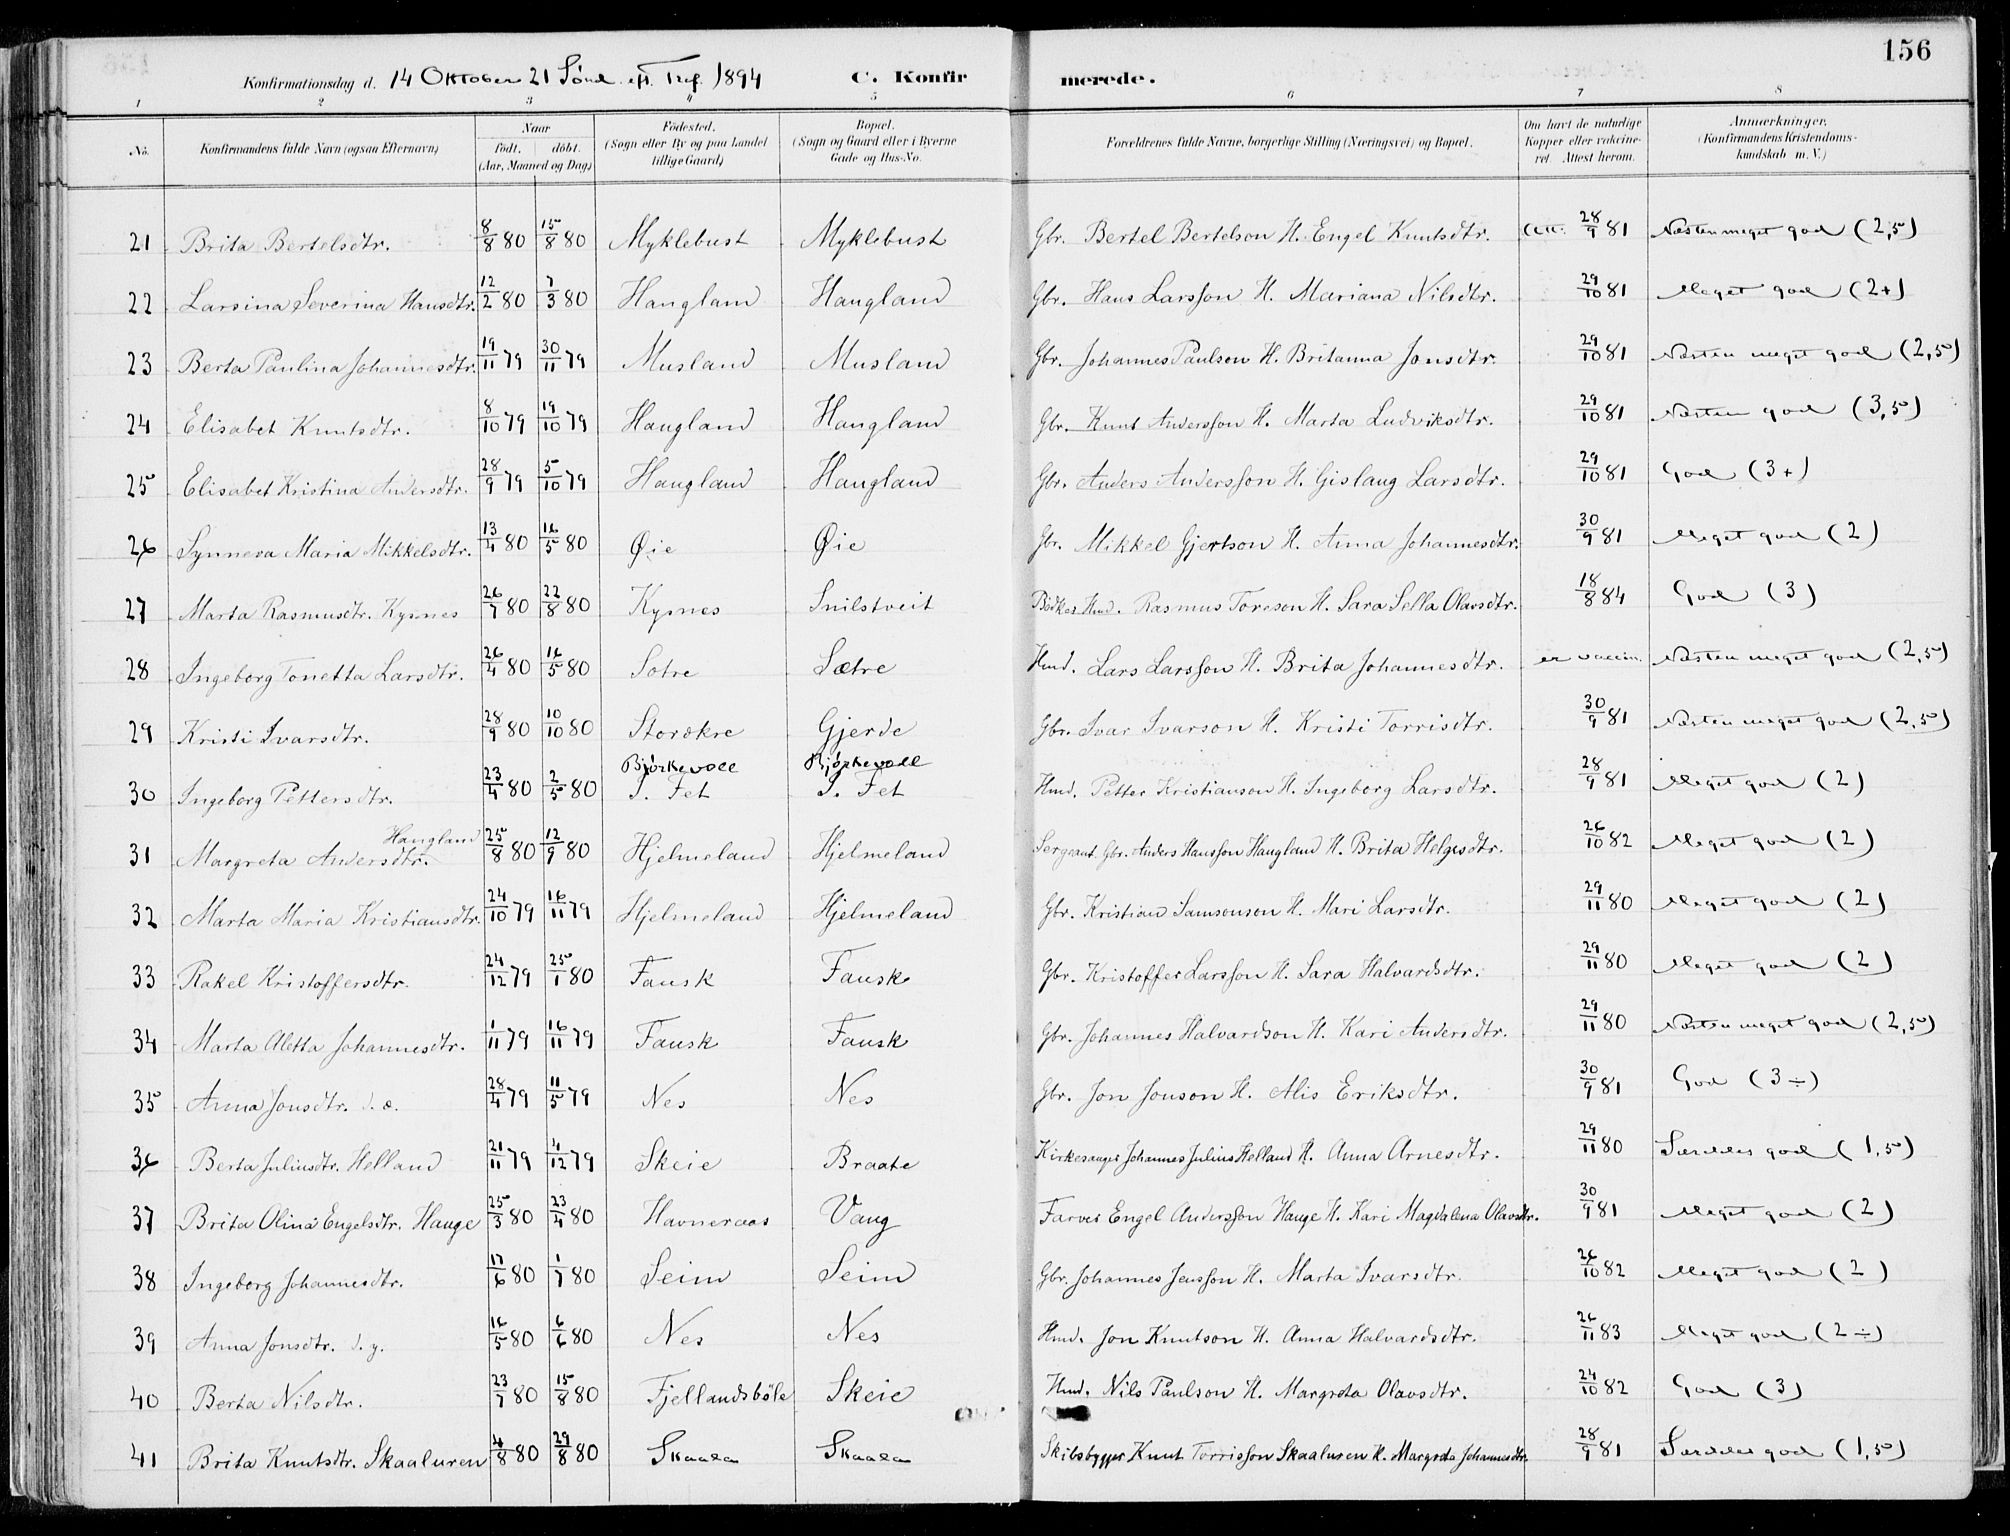 156
Konfirmationsdag d. 14 Oktober 21 Sönd. eft. Tref. 1894 C. Konfir merede.
1 2 3 4 5 6 7 8
No. Konfirmandens fulde Navn (ogsaa Efternavn) Naar födt. döbt. (Aar, Maaned og Dag) Födested. (Sogn eller By og paa Landet tillige Gaard) Bopæl. (Sogn og Gaard eller i Byerne Gade og Hus-No. Forældrenes fulde Navne, borgerlige Stilling (Næringsvei) og Bopæl. Om havt de naturlige Kopper eller vakcineret. Attest herom. Anmærkninger. (Konfirmandens Kristendomskundskab m. V.)
21 Brita Bertelsdtr. 8/8 80 15/8 80 Myklebust Myklebust Gbr. Bertel Bertelson H. Engel Knutsdtr. Att. 28/9 81 Næsten meget god (2,5)
22 Larsina Severina Hansdtr. 12/2 80 7/3 80 Haugland Haugland Gbr. Hans Larsson H. Mariana Nilsdtr. 29/10 81 Meget god (2+)
23 Berta Paulina Johannesdtr. 19/11 79 30/11 79 Musland Musland Gbr. Johannes Paulson H. Britanna Jonsdtr. 29/10 81 Næsten meget god (2,5)
24 Elisabet Knutsdtr. 8/10 79 19/10 79 Haugland Haugland Gbr. Knut Andersson H. Marta Ludviksdtr. 29/10 81 Næsten god (3,5)
25 Elisabet Kristina Andersdtr. 28/9 79 5/10 79 Haugland Haugland Gbr. Anders Andersson H. Gislaug Larsdtr. 29/10 81 God (3+)
26 Synneva Maria Mikkelsdtr. 13/4 80 16/5 80 Øie Øie Gbr. Mikkel Gjertson H. Anna Johannesdtr. 30/9 81 Meget god (2)
27 Marta Rasmusdtr. Kysnes 26/7 80 22/8 80 Kysnes Snilstveit Bödker Hmd. Rasmus Toreson H. Sara Sella Olavsdtr. 18/8 84 God (3)
28 Ingeborg Tonetta Larsdtr. 26/4 80 16/5 80 Sætre Sætre Hmd. Lars Larsson H. Brita Johannesdtr. er vaccin. Næsten meget god (2,5)
29 Kristi Ivarsdtr. 28/9 80 10/10 80 Storækre Gjerde Gbr. Ivar Ivarson H. Kristi Torrisdtr. 30/9 81 Næsten meget god (2,5)
Bjørkevoll Bjørkevoll
30 Ingeborg Pettersdtr. 23/4 80 2/5 80 I. Fet I. Fet Hmd. Petter Kristianson H. Ingeborg Larsdtr. 28/9 81 Meget god (2)
Haugland
31 Margreta Andersdtr. 25/8 80 12/9 80 Hjelmeland Hjelmeland Sergeant Gbr. Anders Hansson Haugland H. Brita Helgesdtr. 26/10 82 Meget god (2)
32 Marta Maria Kristiansdtr. 24/10 79 16/11 79 Hjelmeland Hjelmeland Gbr. Kristian Samsonson H. Mari Larsdtr. 29/11 80 Meget god (2)
33 Rakel Kristoffersdtr. 24/12 79 25/1 80 Fausk Fausk Gbr. Kristoffer Larsson H. Sara Halvardsdtr. 29/11 80 Meget god (2)
34 Marta Aletta Johannesdtr. 1/11 79 16/11 79 Fausk Fausk Gbr. Johannes Halvardson H. Kari Andersdtr. 29/11 80 Næsten meget god (2,5)
35 Anna Jonsdtr. d. æ. 28/4 79 11/5 79 Nes Nes Gbr. Jon Jonson H. Alis Eriksdtr. 30/9 81 God (3÷)
36 Berta Juliusdtr. Helland 21/11 79 4/12 79 Skeie Braate Kirkesanger Johannes Julius Helland H. Anna Arnesdtr. 29/11 80 Særdeles god (1,5)
37 Brita Olina Engelsdtr. Hauge 25/3 80 23/4 80 Havneraas Vang Farver Engel Andersson Hauge H. Kari Magdalena Olavsdtr. 30/9 81 Meget god (2)
38 Ingeborg Johannesdtr. 17/6 80 1/7 80 Seim Seim Gbr. Johannes Jensson H. Marta Ivarsdtr. 26/10 82 Meget god (2)
39 Anna Jonsdtr. d. y. 16/5 80 6/6 80 Nes Nes Hmd. Jon Knutson H. Anna Halvardsdtr. 26/11 83 Meget god (2÷)
40 Berta Nilsdtr. 23/7 80 15/8 80 Fjellandsböle Skeie Hmd. Nils Paulson H. Margreta Olavsdtr. 24/10 82 God (3)
41 Brita Knutsdtr. Skaaluren 4/8 80 29/8 80 Skaala Skaala Skibsbygger Knut Torrisson Skaaluren H. Margreta Johannesdtr. 28/9 81 Særdeles god (1,5)